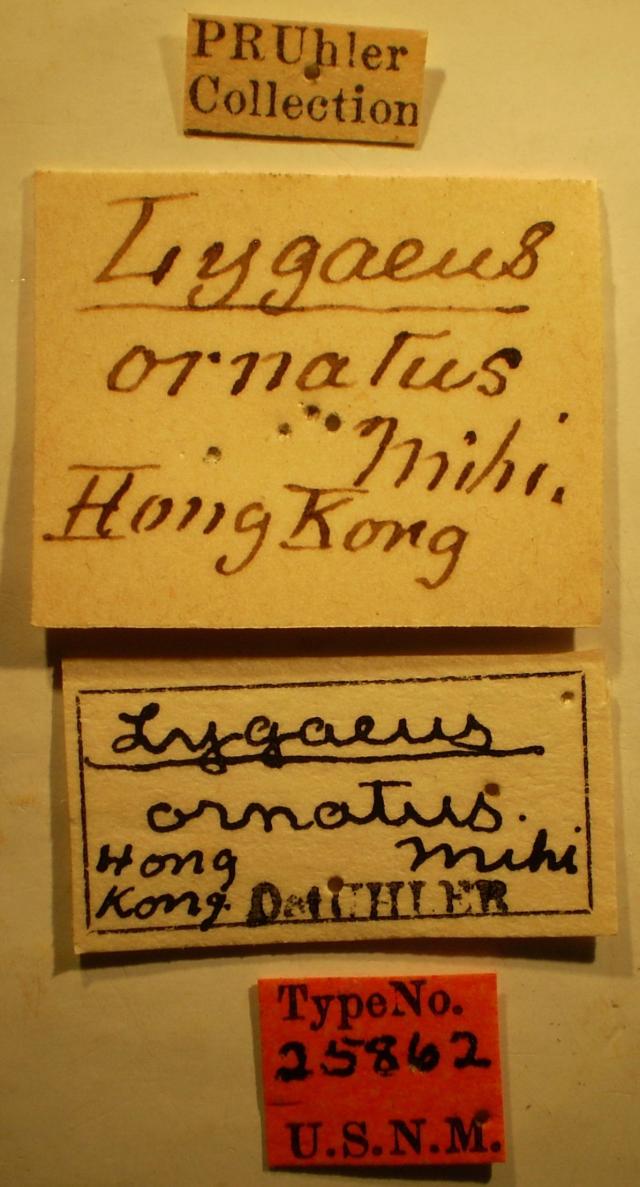 PRUhler
Collection
Lygaeus
ornatus
Mihi.
Hong Kong
Lygaeus
ornatus.
Hong mihi
Kong. Det UHLER
Type No.
25862
U.S.N.M.